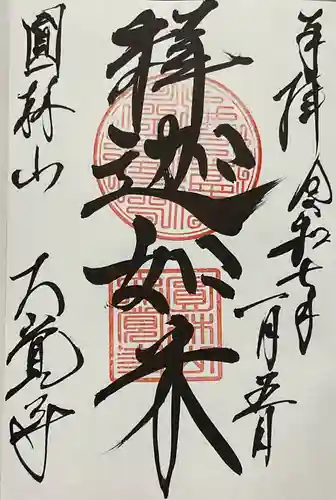 奉拝 令和七年一月五日
釋迦如来
圓林山 覚寺